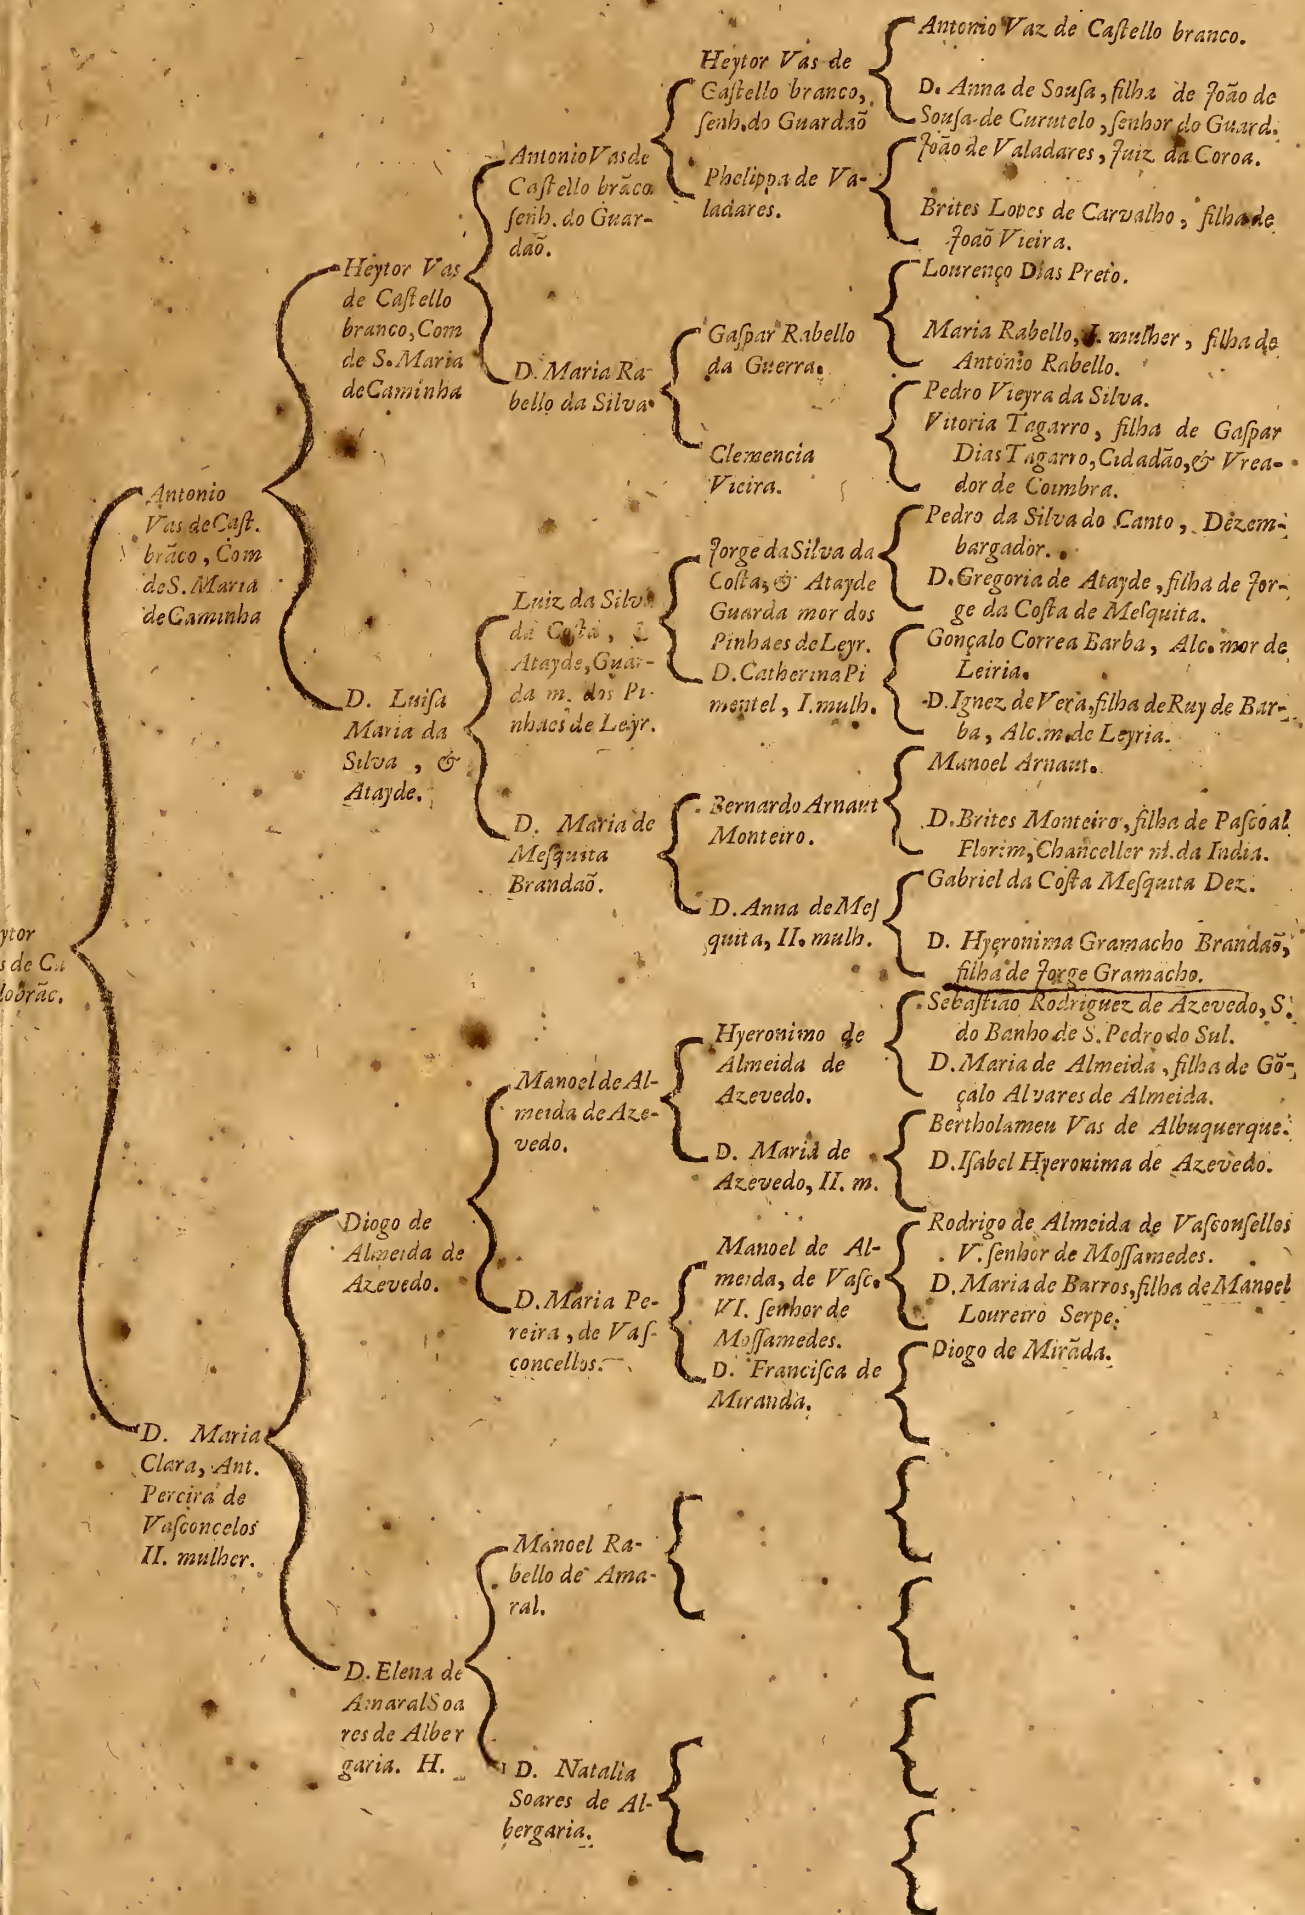 ytor
s de Ca
lobrãc.
Antonio
Vas de Caſt.
brãco, Com
de S. Maria
de Caminha
D. Maria
Clara, Ant.
Pereira de
Vaſconcelos
II. mulher.
Heytor Vas
de Caſtello
branco, Com
de S. Maria
de Caminha
D. Luiſa
Maria da
Silva, &
Atayde.
Diogo de
Almeida de
Azevedo.
D. Elena de
Amaral Soa
res de Alber
garia. H.
Antonio Vas de
Caſtello brãco
ſenh. do Guar-
daõ.
D. Maria Ra-
bello da Silva.
Luiz da Silva
da Coſta, &
Atayde, Guar-
da m. dos Pi-
nhaes de Leyr.
D. Maria de
Meſquita
Brandaõ.
Manoel de Al-
meida de Aze-
vedo.
D. Maria Pe-
reira, de Vaſ-
concellos.
Manoel Ra-
bello de Ama-
ral.
D. Natalia
Soares de Al-
bergaria.
Heytor Vas de
Caſtello branco,
ſenh. do Guardaõ
Phelippa de Va-
ladares.
Gaſpar Rabello
da Guerra.
Clemencia
Vieira.
Jorge da Silva da
Coſta, & Atayde
Guarda mor dos
Pinhaes de Leyr.
D. Catherina Pi
mentel, I. mulh.
Bernardo Arnaut
Monteiro.
D. Anna de Meſ
quita, II. mulh.
Hyeronimo de
Almeida de
Azevedo.
D. Maria de
Azevedo, II. m.
Manoel de Al-
meida, de Vaſc.
VI. ſenhor de
Moſſamedes.
D. Franciſca de
Miranda.
Antonio Vaz de Caſtello branco.
D. Anna de Souſa, filha de João de
Souſa de Curutelo, ſenhor do Guard.
João de Valadares, Juiz da Coroa.
Brites Lopes de Carvalho, filha de
Joaõ Vieira.
Lourenço Dias Preto.
Maria Rabello, I. mulher, filha de
Antonio Rabello.
Pedro Vieyra da Silva.
Vitoria Tagarro, filha de Gaſpar
Dias Tagarro, Cidadão, & Vrea-
dor de Coimbra.
Pedro da Silva do Canto, Dezem-
bargador.
D. Gregoria de Atayde, filha de Jor-
ge da Coſta de Meſquita.
Gonçalo Correa Barba, Alc. mor de
Leiria.
D. Ignez de Vera, filha de Ruy de Bar-
ba, Alc. m. de Leyria.
Manoel Arnaut.
D. Brites Monteiro, filha de Paſcoal
Florim, Chanceller m. da India.
Gabriel da Coſta Meſquita Dez.
D. Hyeronima Gramacho Brandaõ,
filha de Jorge Gramacho.
Sebaſtiao Rodriguez de Azevedo, S.
do Banho de S. Pedro do Sul.
D. Maria de Almeida, filha de Gõ-
çalo Alvares de Almeida.
Bertholameu Vas de Albuquerque.
D. Iſabel Hyeronima de Azevedo.
Rodrigo de Almeida de Vaſconſellos
V. ſenhor de Moſſamedes.
D. Maria de Barros, filha de Manoel
Loureiro Serpe.
Diogo de Mirãda.